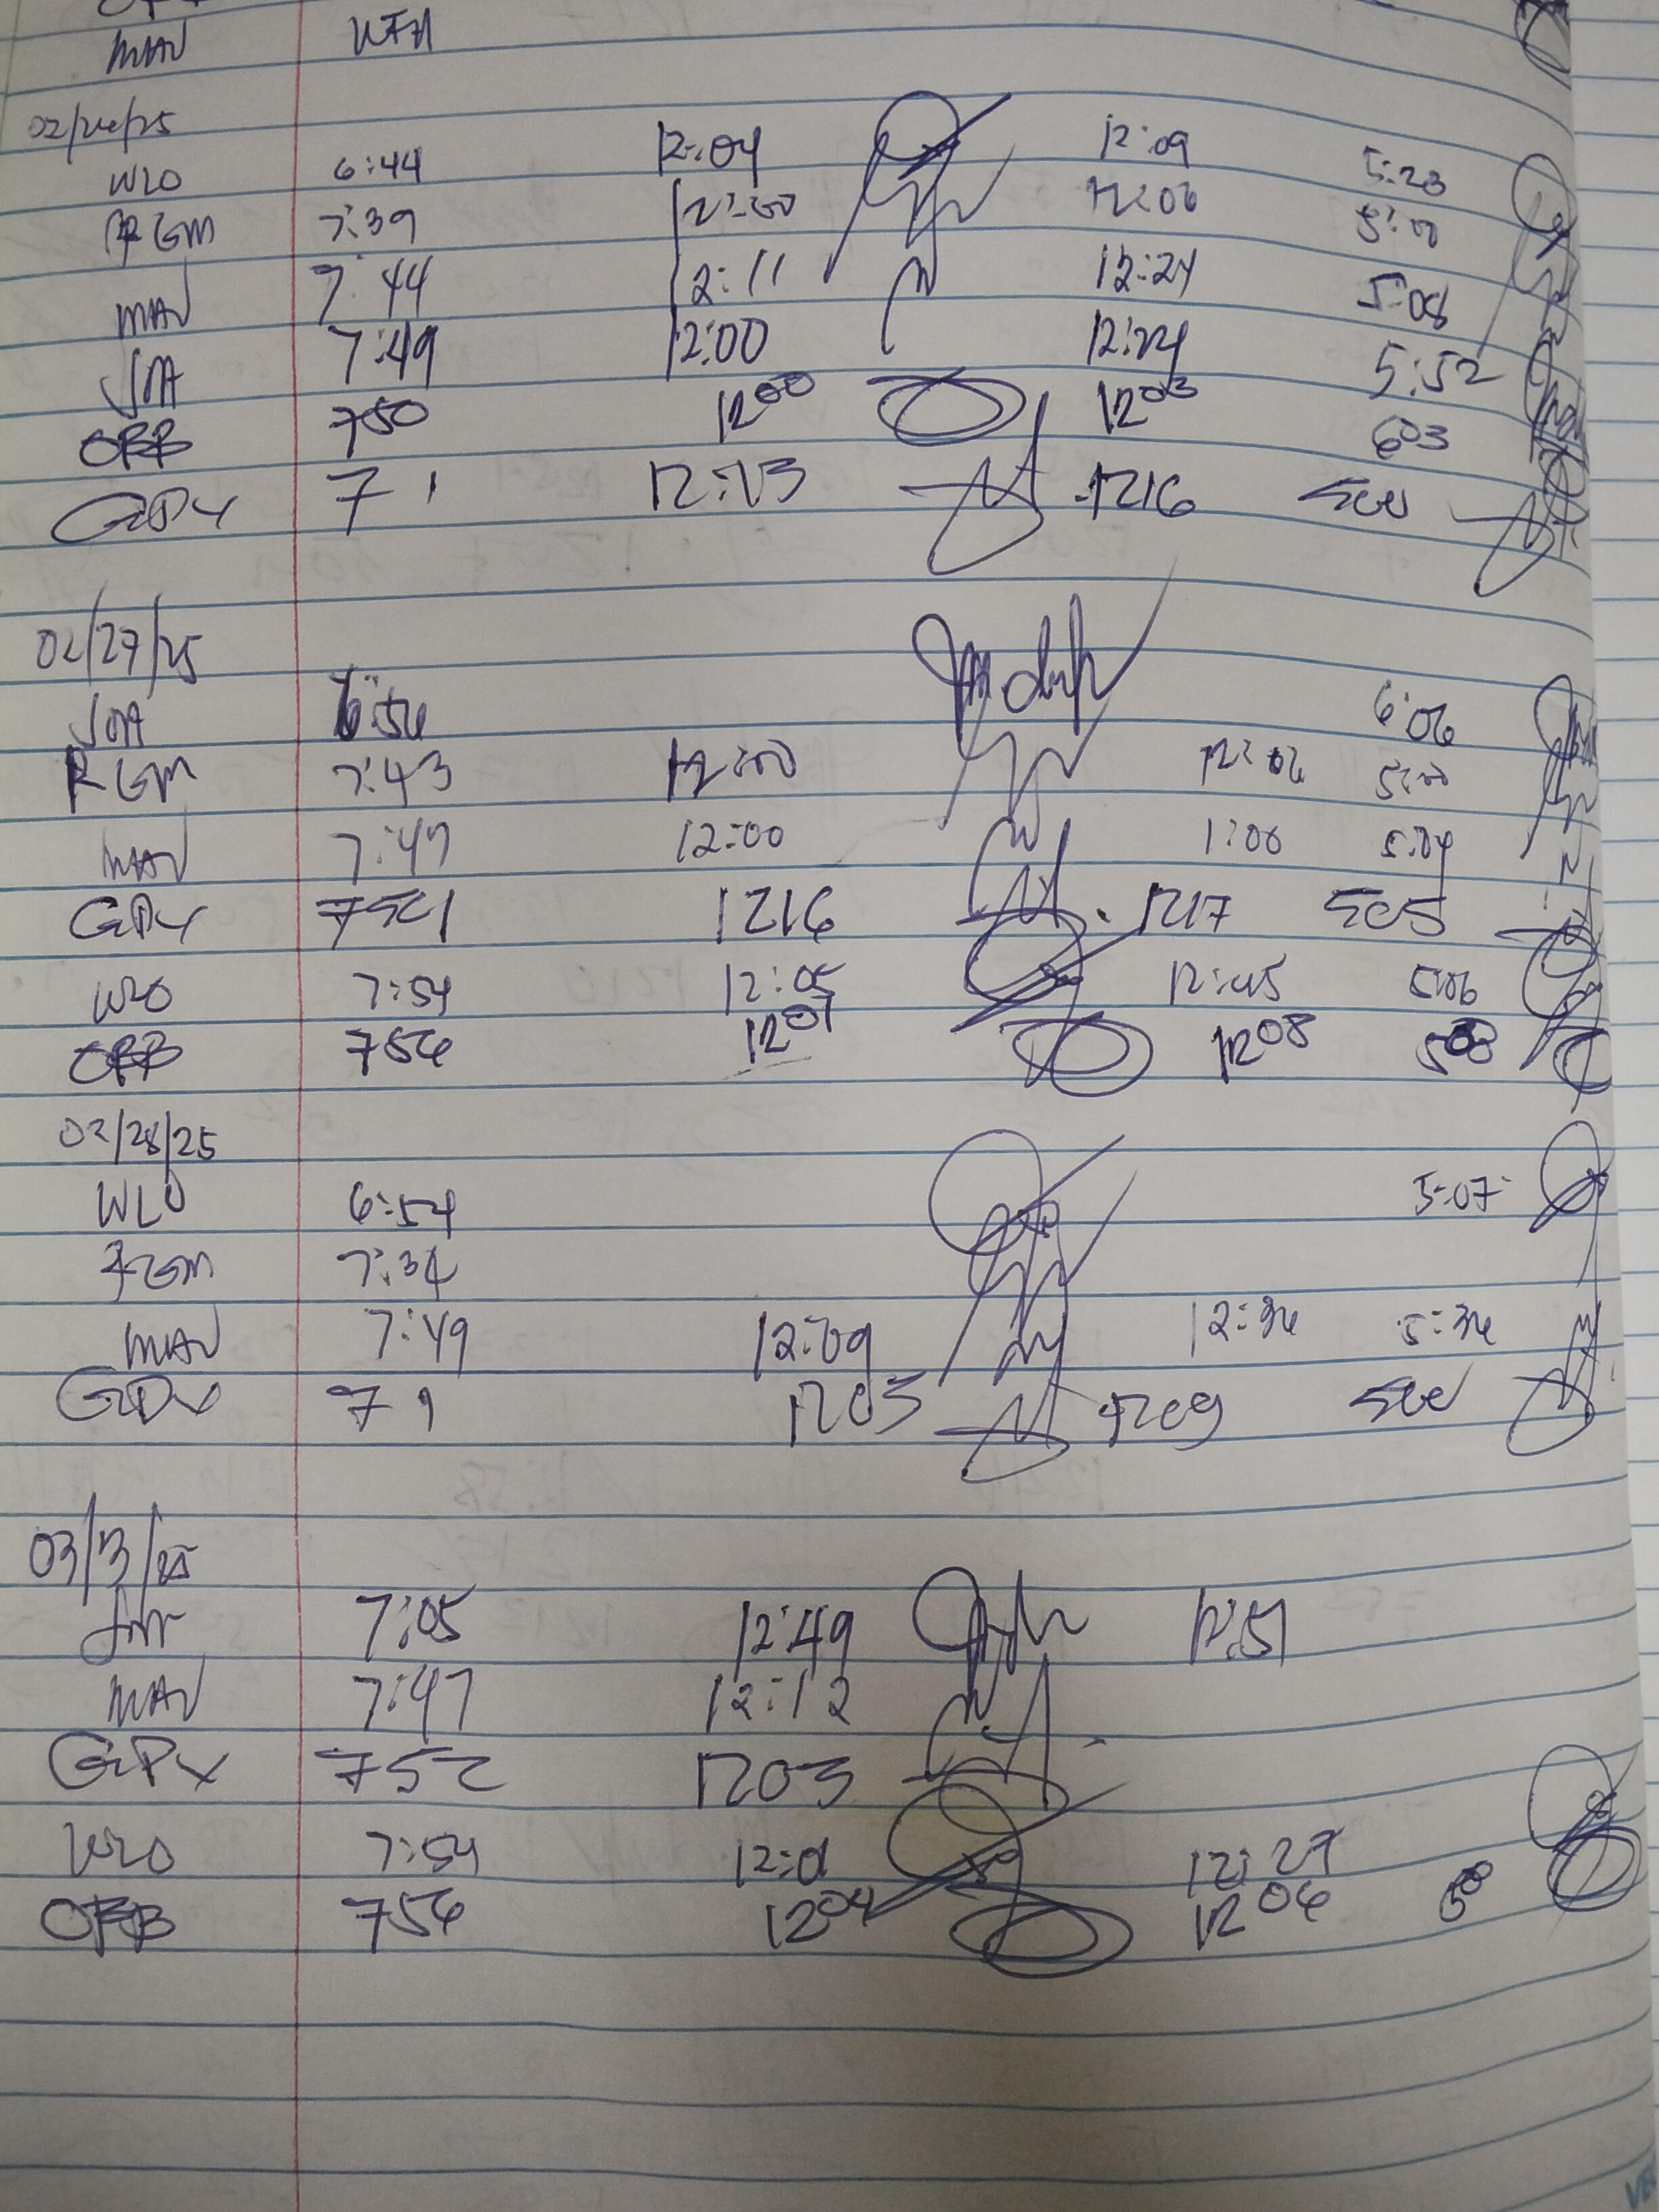 MAV WFH
02/26/25
WLO 6:44 12:04 12:09 5:23
RGM 7:39 12:00 12:06 5:00
MAV 7:44 12:11 12:24 5:08
JOA 7:49 12:00 12:24 5:52
ORB 750 1200 1203 603
GDX 7 12:13 1216 500
02/27/25
JOA 6:56 6:06
RGM 7:43 12:00 12:06 5:00
MAV 7:47 12:00 1:00 5:04
GDX 1216 1217 505
WLO 7:54 12:05 12:45 5:06
ORB 756 1207 1208 503
02/28/25
WLO 6:54 5:07
RGM 7:34
MAV 7:49 12:09 12:36 5:36
GDX 7 1203 1209 500
03/3/25
7:05 12:49 12:51
MAV 7:47 12:12
GDX 752 1203
WLO 7:54 12:01 12:27
ORB 756 1204 1206 500